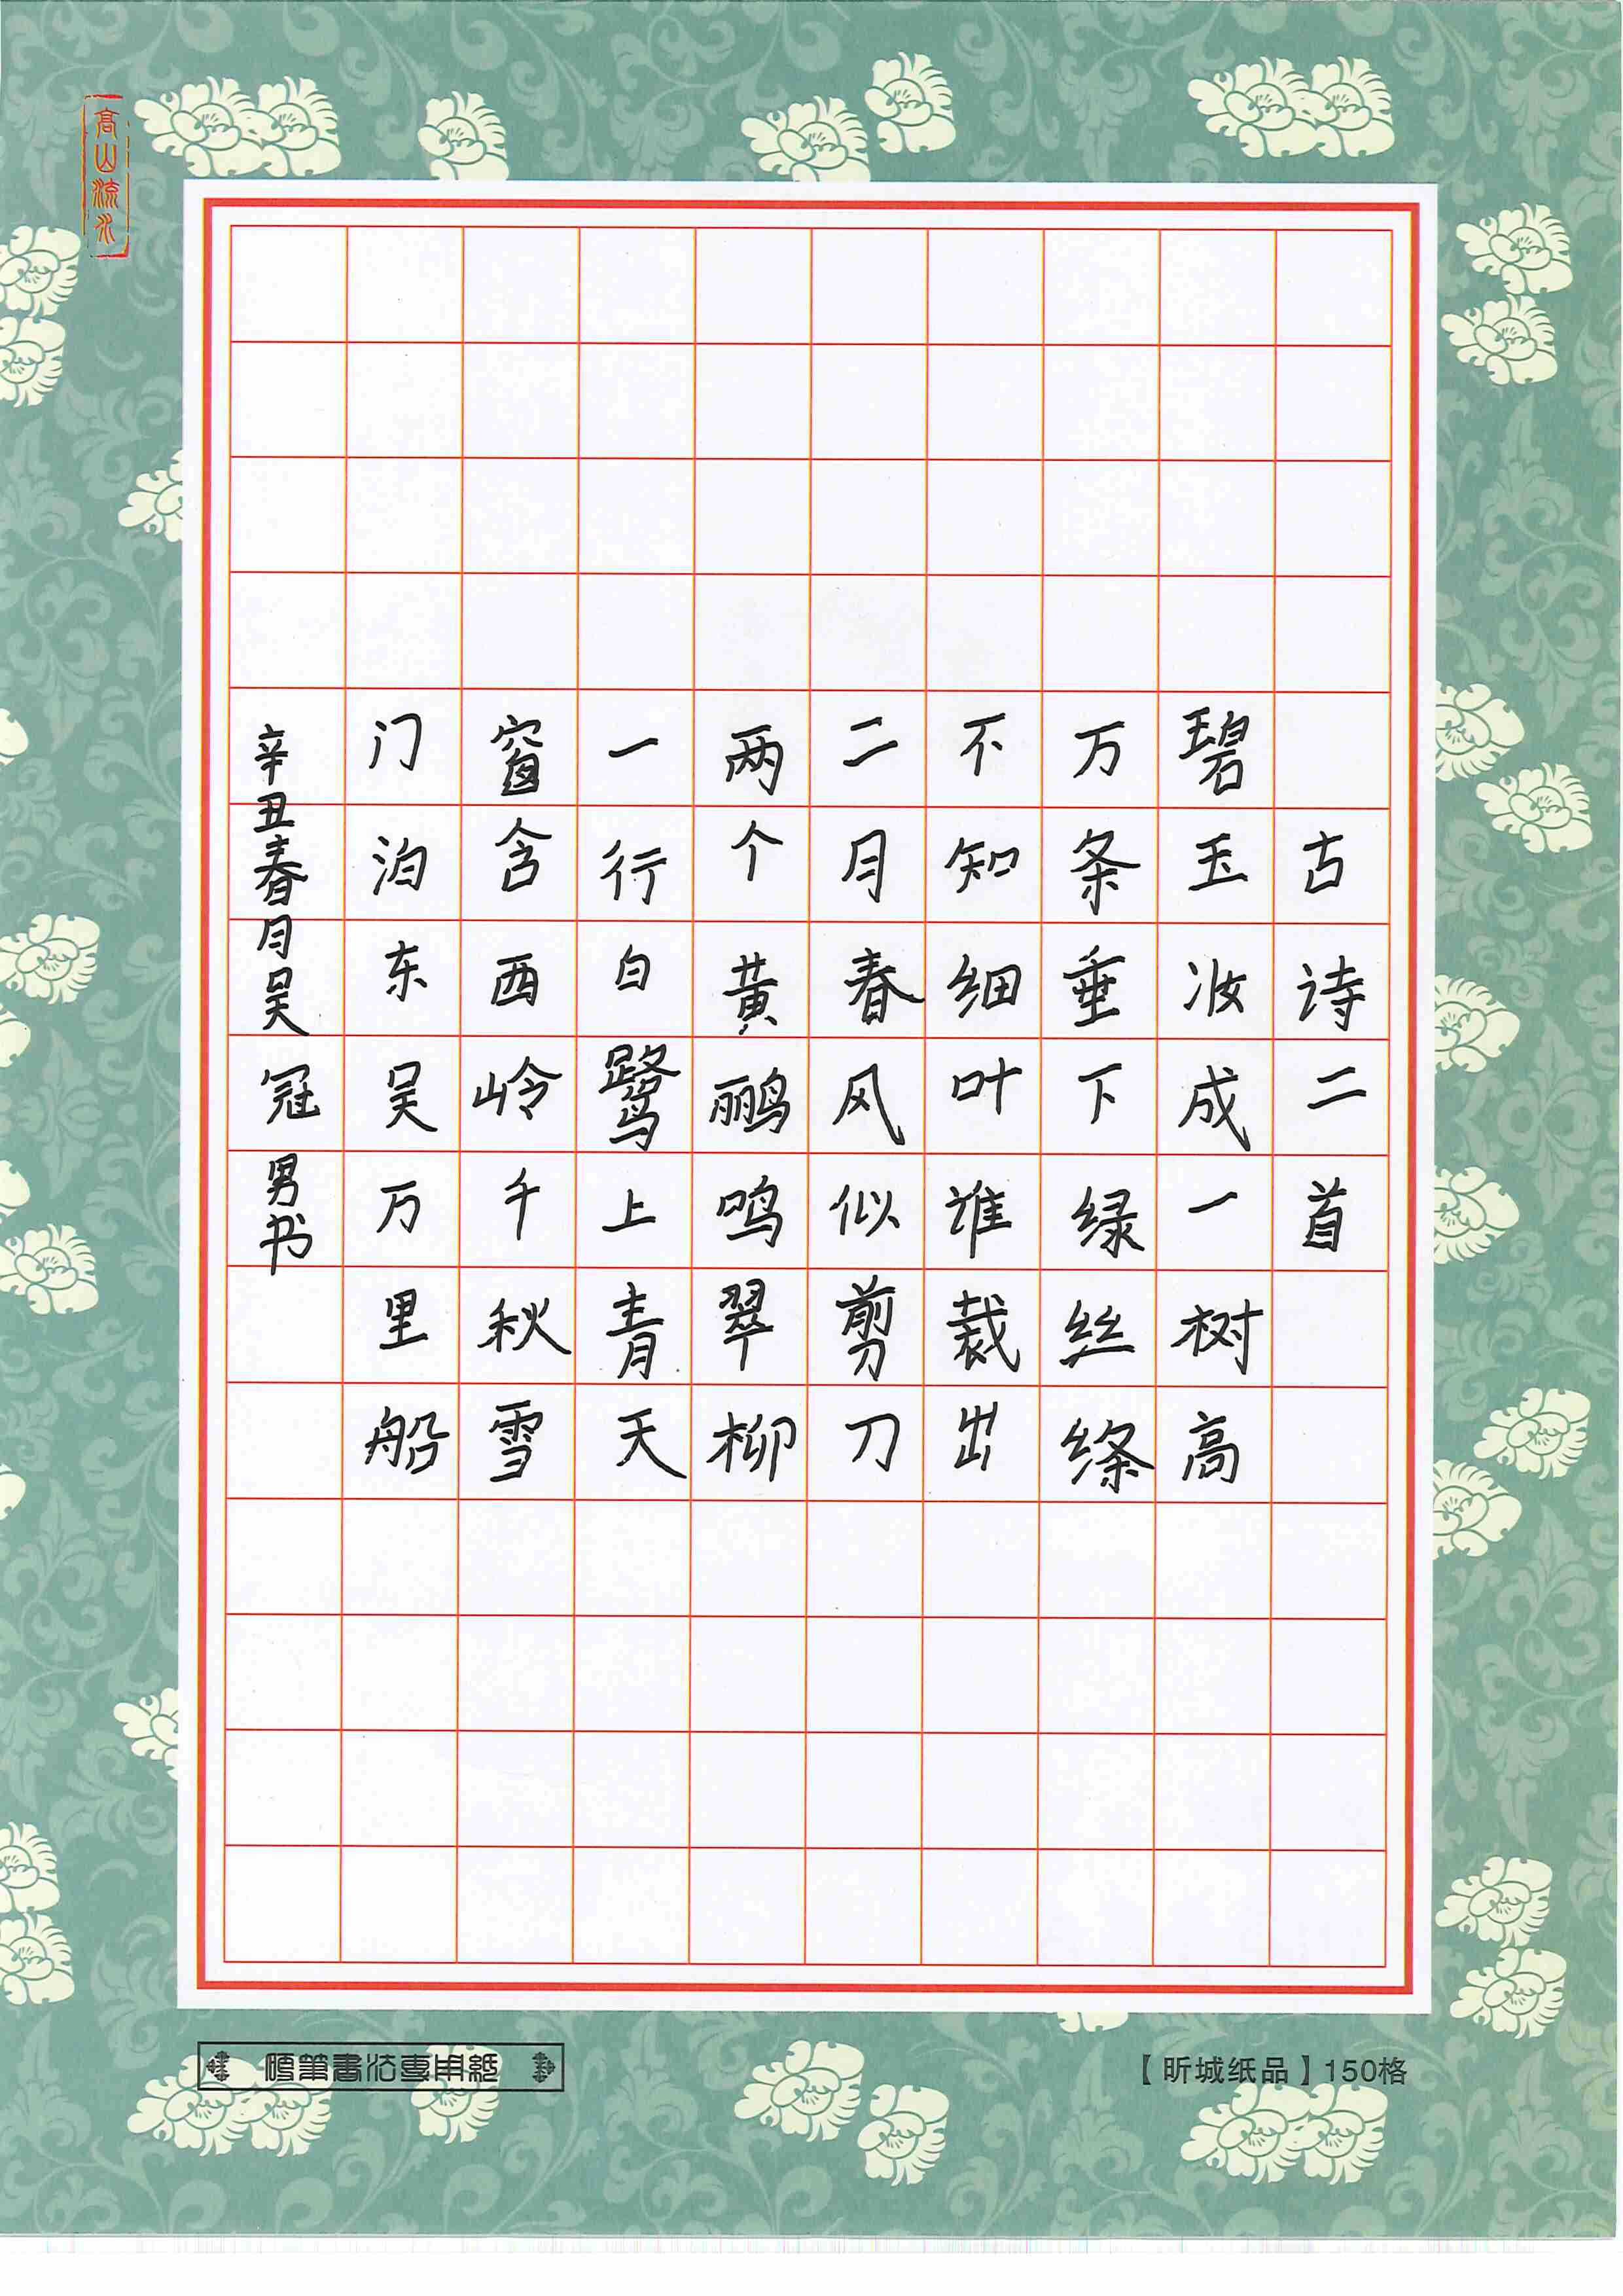 高山流水
古诗二首
碧玉妆成一树高
万条垂下绿丝绦
不知细叶谁裁出
二月春风似剪刀
两个黄鹂鸣翠柳
一行白鹭上青天
窗含西岭千秋雪
门泊东吴万里船
辛丑春月吴冠男书
硬筆書法專用紙
【昕城纸品】150格